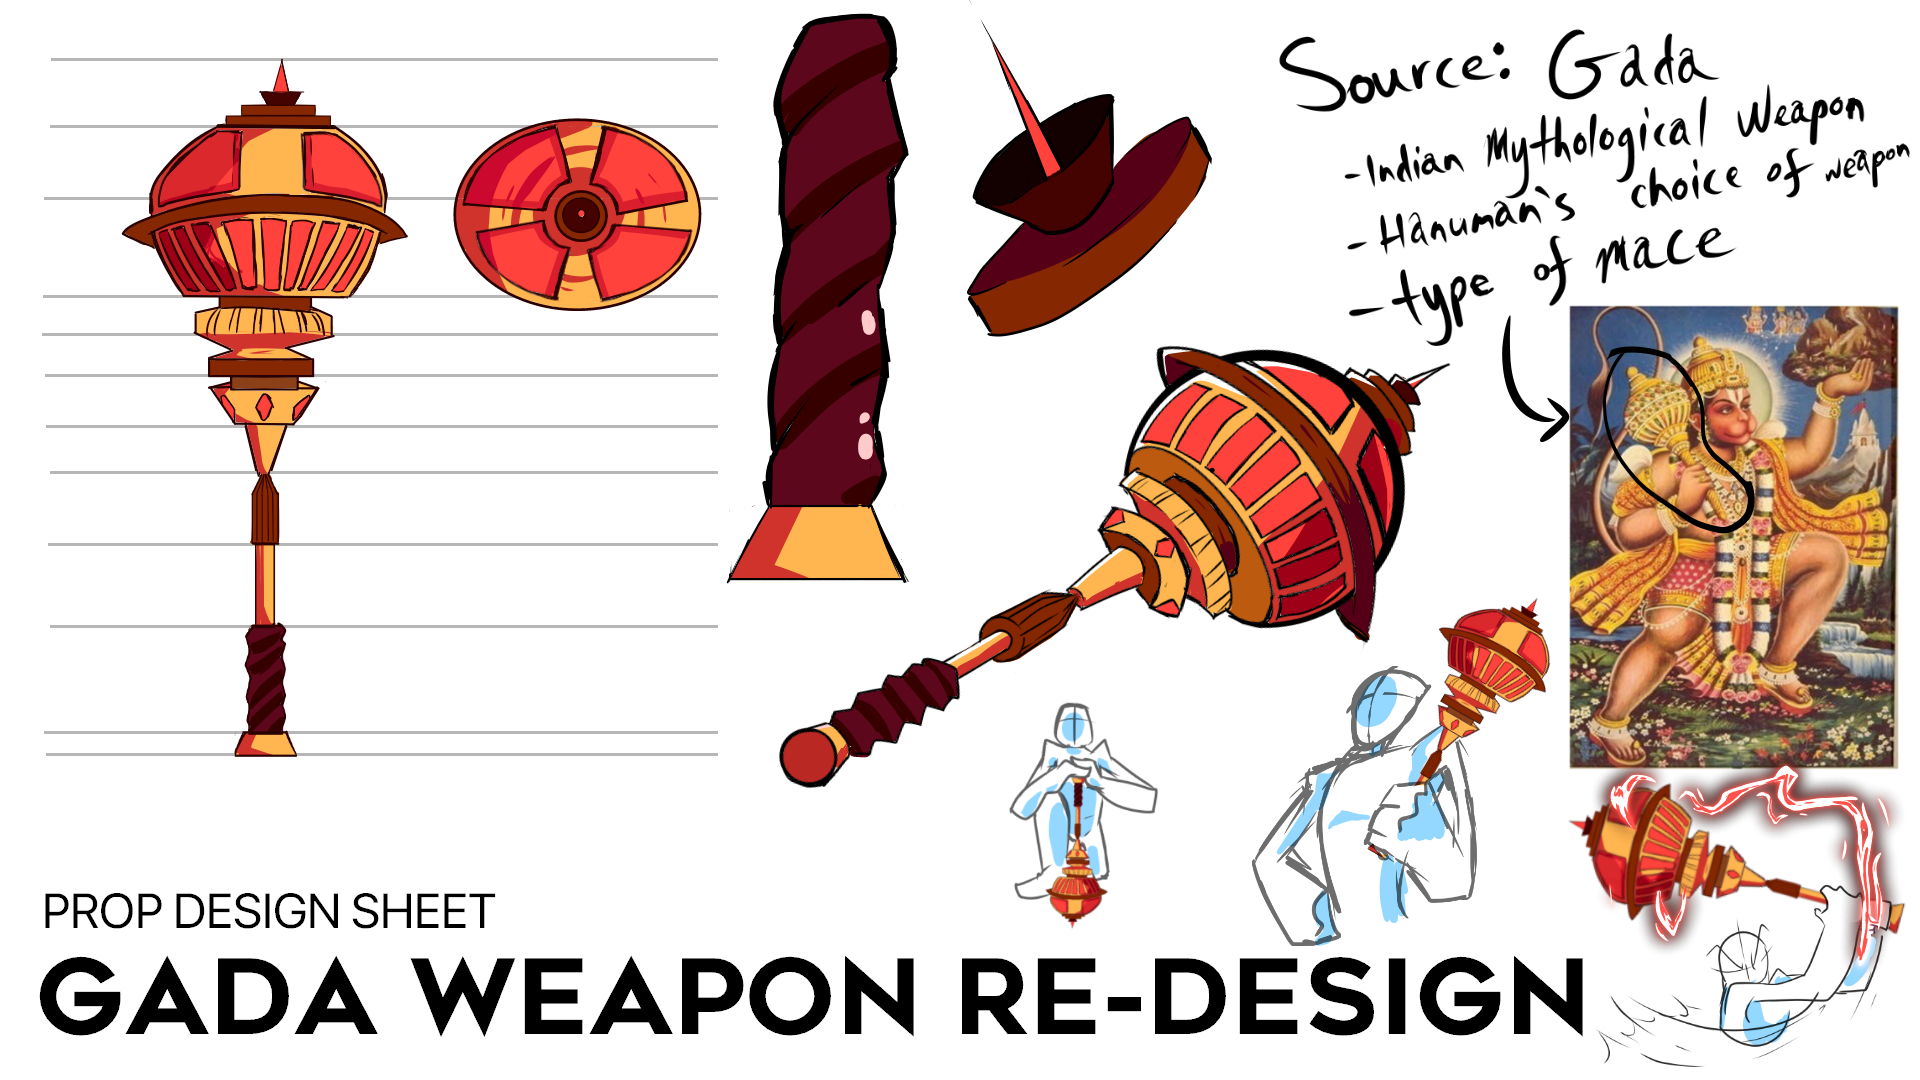 Source: Gada
-Indian Mythological Weapon
-Hanuman's choice of weapon
-type of mace
PROP DESIGN SHEET
GADA WEAPON RE-DESIGN